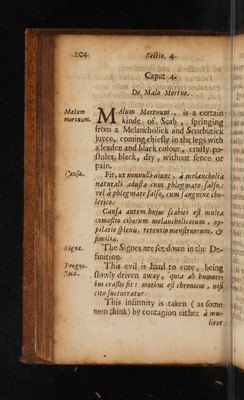 204 Sectio. 4.
Caput 4.
De Malo Mortuo.
Malum mortuum.
MAlum Mortuum, is a certain
kinde of Scab, springing
from a Melancholick and Scorbutick
Juyce, coming chiefly in the legs with
a leaden and black colour, crusty pu-
stules, black, dry, without sence or
pain.
Causa.
Fit, ut nonnulli aiunt, à melancholia
naturali adusta cum phlegmate salso:
vel à phlegmate salso, cum sanguine cho-
lerico.
Causa autem hujus scabiei est multa
comestio ciborum melancholicorum, op-
pilatio splenis, retentio menstruorum, &
similia.
Signa.
The Signes are set down in the De-
finition.
Progno-
stica.
This evil is hard to cure, being
slowly driven away, quia ab humori-
bus crassis fit: morbus est chronicus, nisi
cito succurratur.
This infirmity is taken (as some
men think) by contagion either à mu-
liere